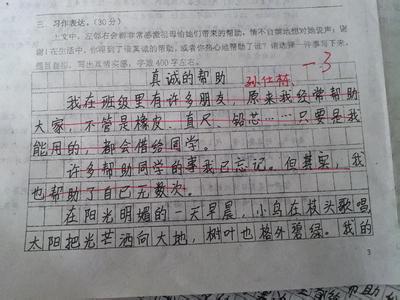 三、习作表达。（30分）
上文中，左邻右舍都非常感激祖母给她们带来的帮助，情不自禁地想对她说声：谢
谢！在生活中，你得到了谁真诚的帮助，或者你热心地帮助了谁？请选择一件事写下来。
题目自拟，写出真情实感，字数400字左右。
真诚的帮助
-3
我在班级里有许多朋友，原来我经常帮助
大家，不管是橡皮、直尺、铅芯……只要是我
能用的，都会借给同学。
许多帮助同学的事我已忘记。但其实，我
也帮助了自己无数次。
在阳光明媚的一天早晨，小鸟在枝头歌唱
太阳把光芒洒向大地，树叶也格外碧绿。我的
3